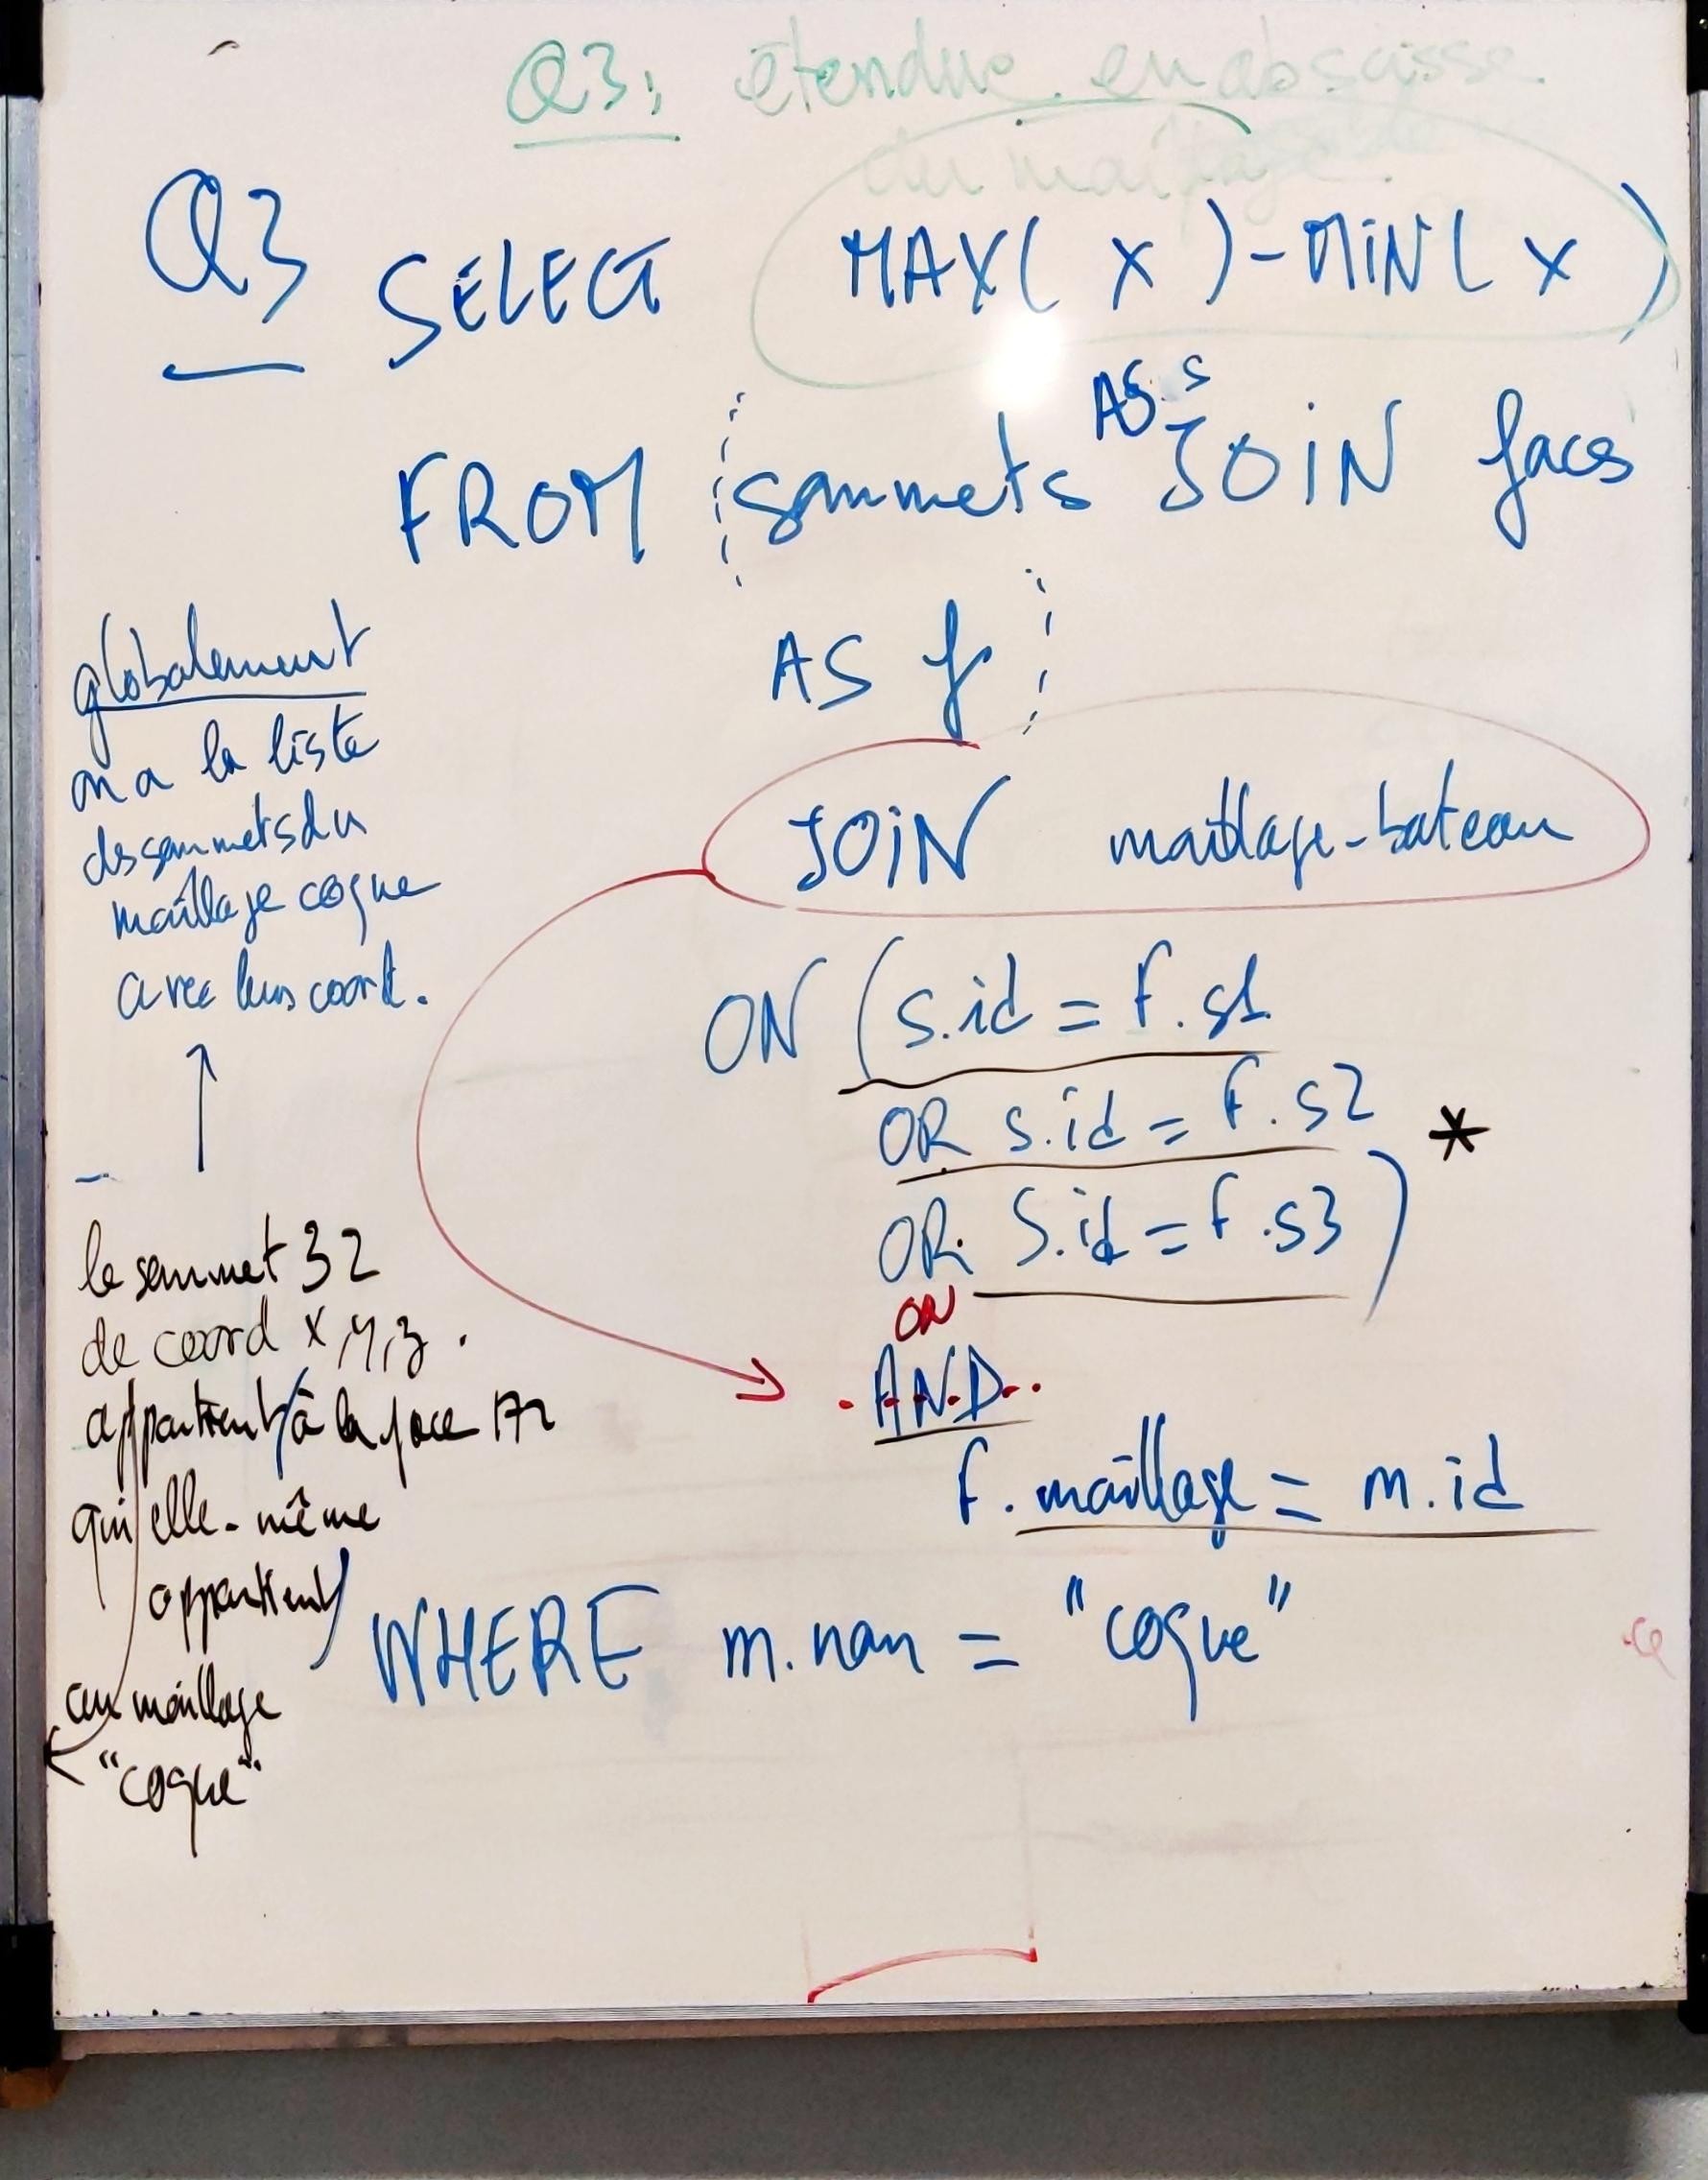 Q3: étendue en abscisse
du maillage
Q3 SELECT MAX( x ) - MIN( x )
AS s
FROM sommets JOIN faces
AS f
JOIN maillage-bateau
ON (s.id = F.s1
OR s.id = F.s2 *
OR S.id = F.s3)
ON
AND
F.maillage = m.id
WHERE m.nom = "coque"
globalement
on a la liste
des sommets du
maillage coque
avec leurs coord.
le sommet 32
de coord x, y, z.
appartient à la face 172
qui elle-même
appartient
au maillage
"coque"